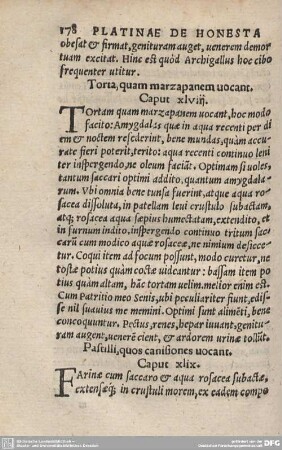 178 PLATINAE DE HONESTA
obesat & firmat, genituram auget, uenerem demor
tuam excitat. Hinc est quòd Archigallus hoc cibo
frequenter utitur.
Torta, quam marzapanem uocant.
Caput xlviij.
TOrtam quam marzapanem uocant, hoc modo
facito: Amygdalas quæ in aqua recenti per di
em & noctem resederint, bene mundas, quàm accu-
rate fieri poterit, terito: aqua recenti continuo leni
ter inspergendo, ne oleum faciāt. Optimam si uoles,
tantum saccari optimo addito, quantum amygdala-
rum. Vbi omnia bene tunsa fuerint, atque aqua ro-
sacea dissoluta, in patellam leui crustulo subactam,
atq; rosacea aqua sæpius humectatam, extendito, et
in furnum indito, inspergendo continuo tritum sac
carū cum modico aquæ rosaceæ, ne nimium desicce-
tur. Coqui item ad focum possunt, modo curetur, ne
tostæ potius quàm coctæ uideantur: bassam item po
tius quàm altam, hāc tortam uelim. melior enim est.
Cum Patritio meo Senis, ubi peculiariter fiunt, edis-
se nil suauius me memini. Optimi sunt alimēti, bene
concoquuntur. Pectus, renes, hepar iuuant, genitu-
ram augent, uenerē cient, & ardorem urinæ tollūt.
Pastilli, quos canisiones uocant.
Caput xlix.
FArinæ cum saccaro & aqua rosacea subactæ,
extensæq; in crustuli morem, ex eadem compo
DFG